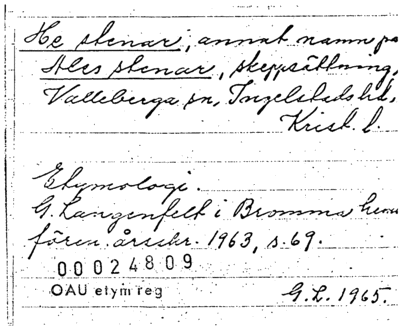 He stenar, annat namn på
Ales stenar, skeppsättning,
Valleberga sn, Ingelstads hd,
Krist. l.
Etymologi.
G. Langenfelt i Bromma hem
fören. årsskr. 1963, s. 69.
00024809
OAU etym reg
G. L. 1965.